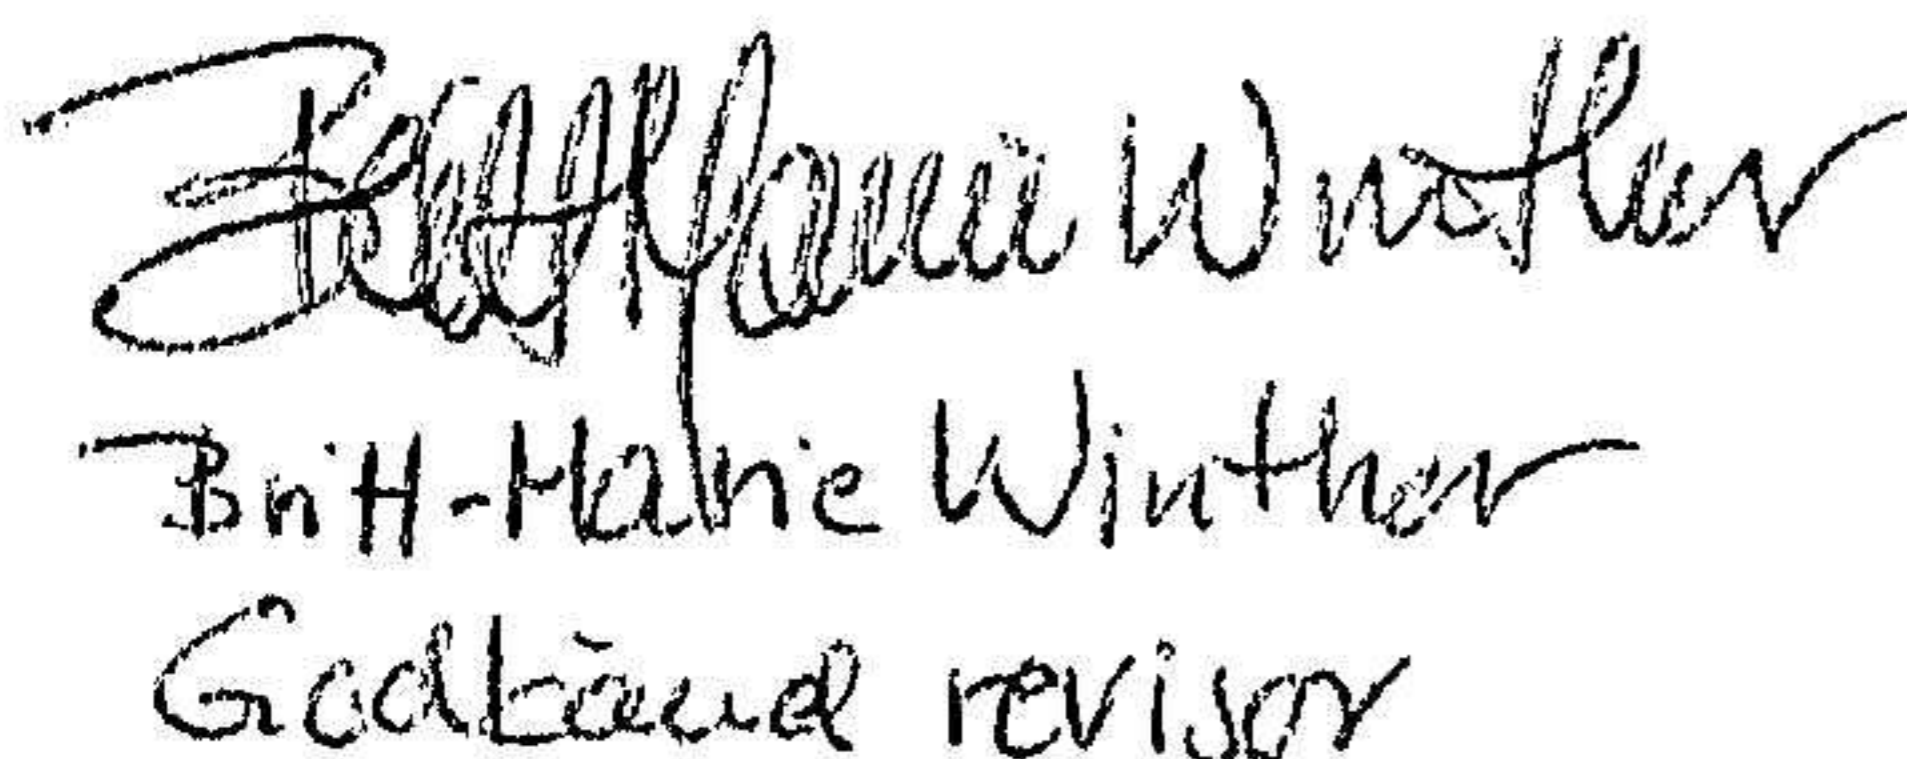 Britt-Marie Winther
Britt-Marie Winther
Godkänd revisor